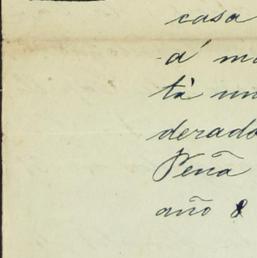 casa
á m
tà un
derado
Peña
año 8